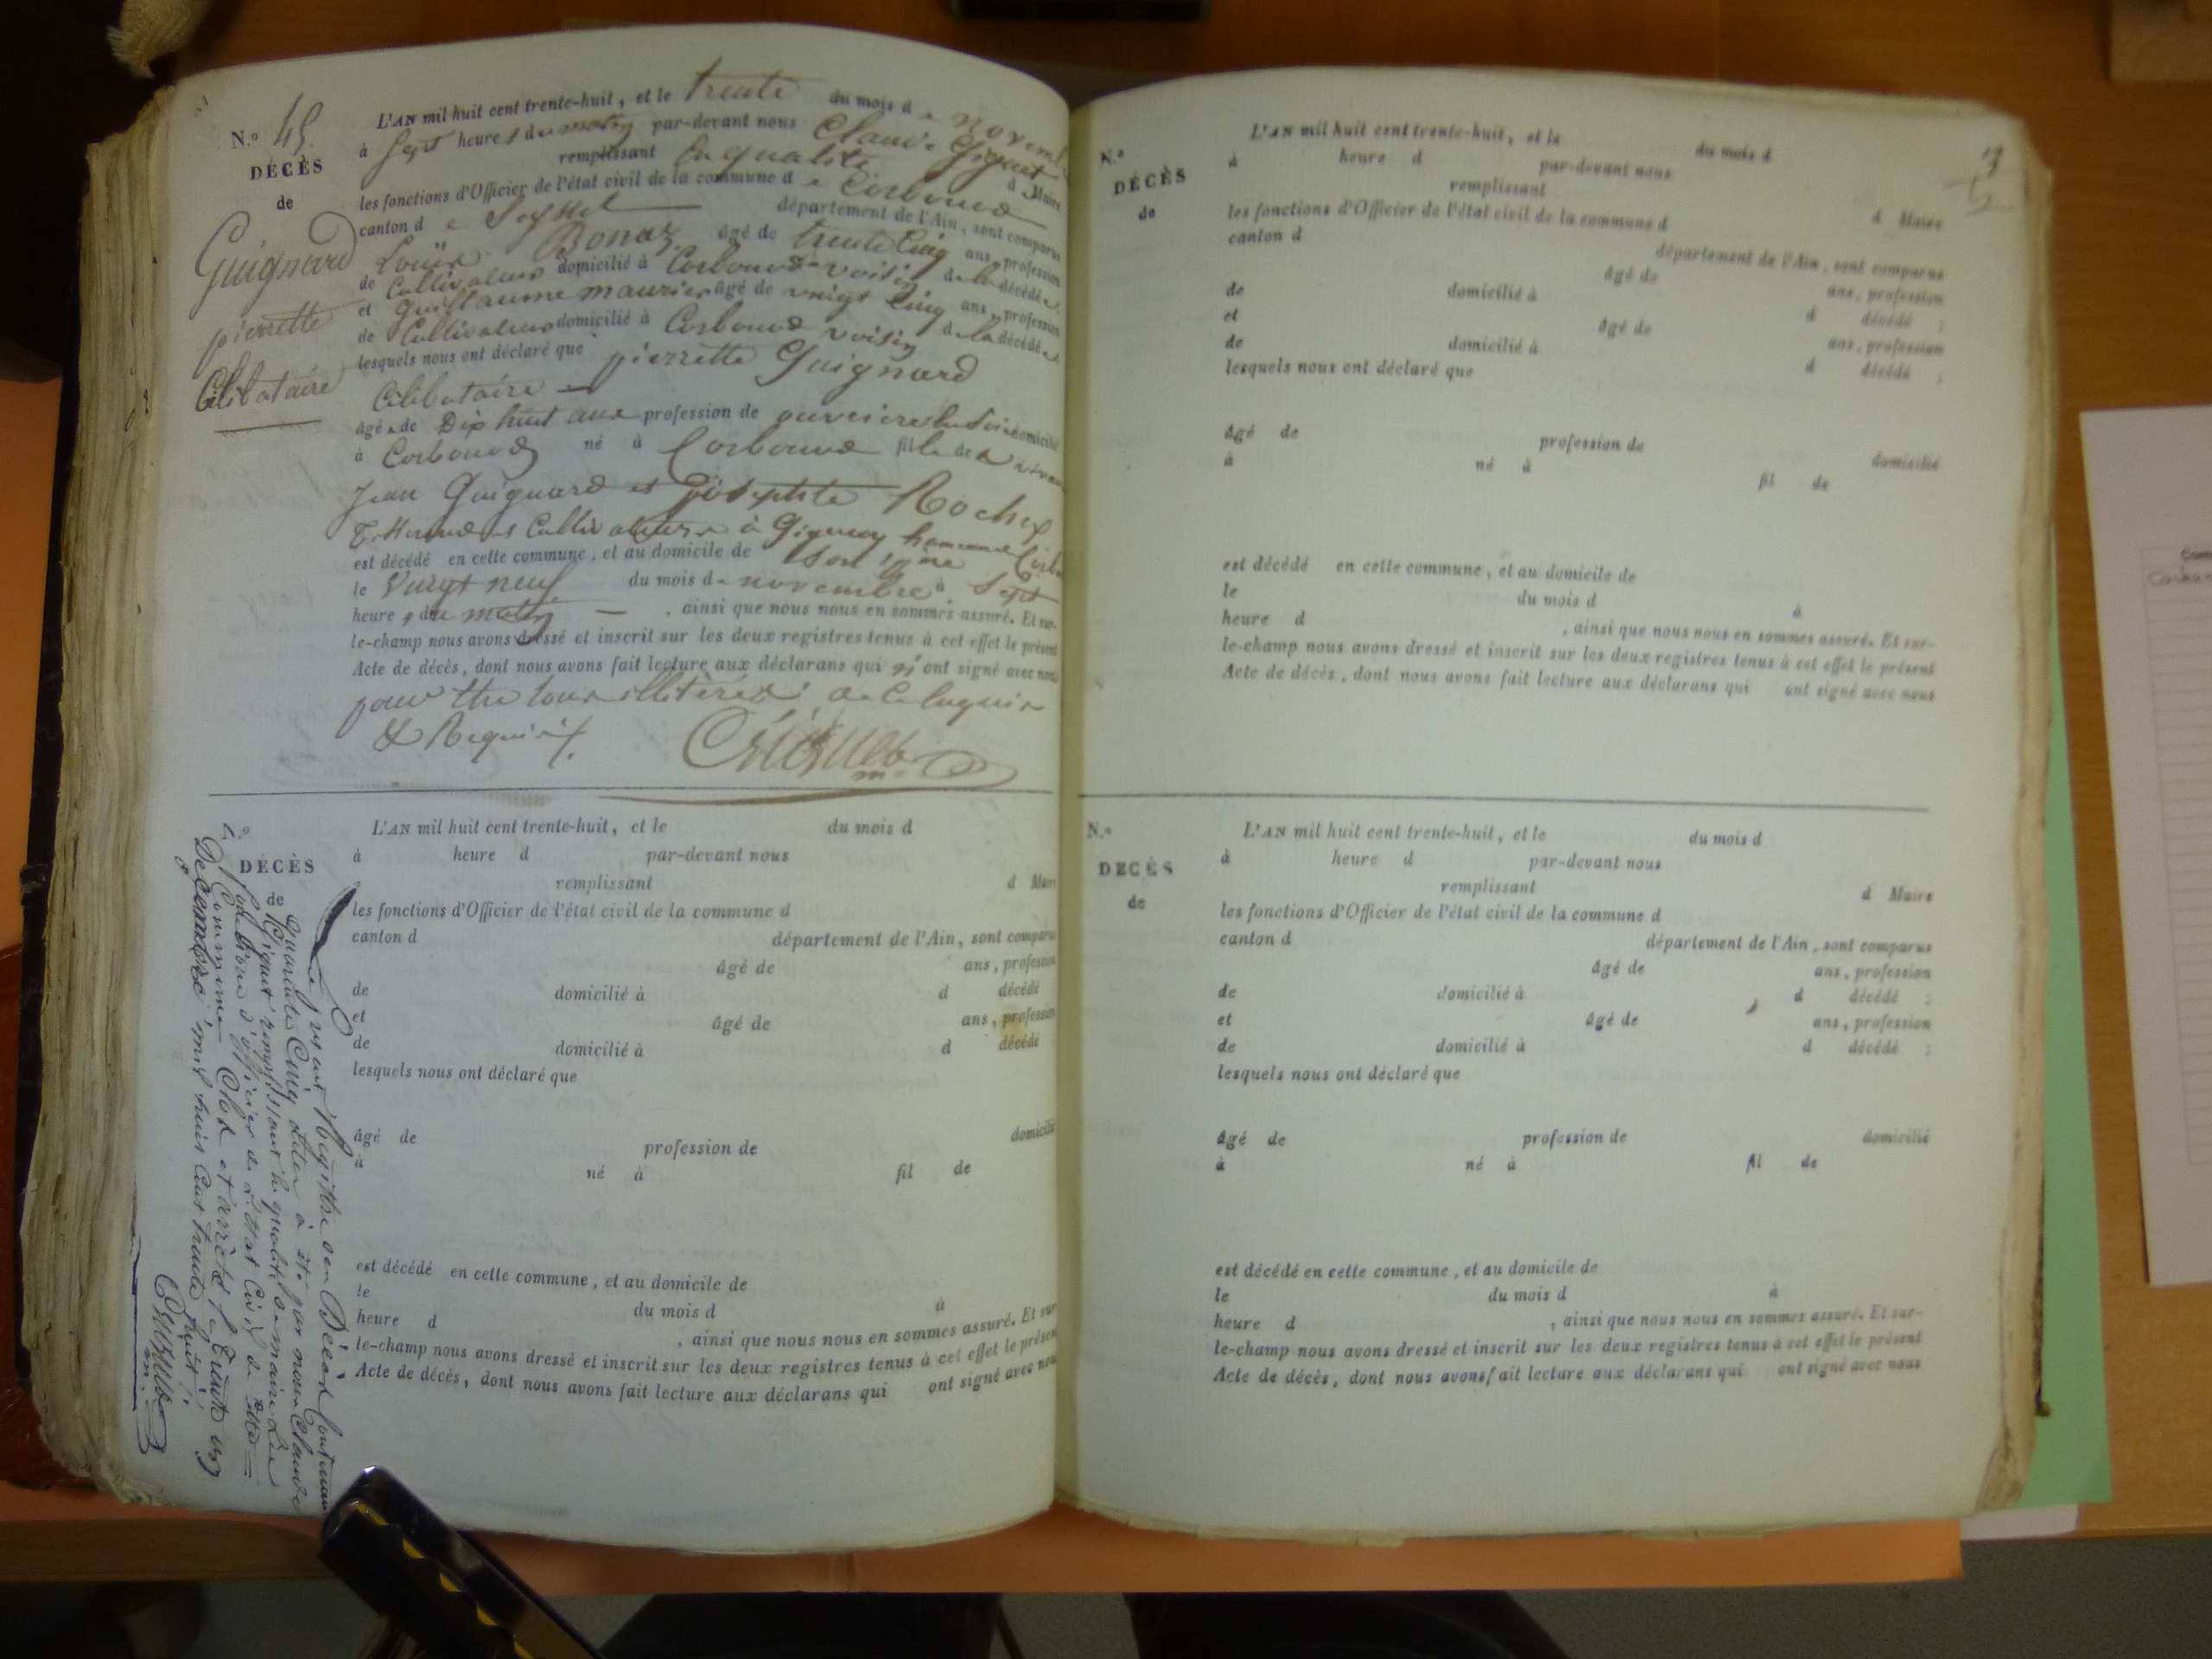 N.° 45.
DÉCÈS
de
Guignard
pierrette
Célibataire
L'AN mil huit cent trente-huit, et le trente du mois de novembre
à Sept heures du matin par-devant nous Claude Giguet
remplissant En qualité d Maire
les fonctions d'Officier de l'état civil de la commune de Corbonod
canton de Seyssel département de l'Ain, sont comparus
Louis Bonaz âgé de trente Cinq ans, profession
de Cultivateur domicilié à Corbonod voisin de la décédée
et Guillaume maurier âgé de vingt Cinq ans, profession
de Cultivateur domicilié à Corbonod voisin de la décédée
lesquels nous ont déclaré que pierrette Guignard
Célibataire
âgée de Dix huit ans profession de ouvrière en Soie domicilié
à Corbonod né à Corbonod fille de
Jean Guignard et Josephte Rochex
Cultivateurs à Gignez hameau
est décédé en cette commune, et au domicile de
le Vingt neuf du mois de novembre à Sept
heures du matin , ainsi que nous nous en sommes assuré. Et sur-
le-champ nous avons dressé et inscrit sur les deux registres tenus à cet effet le présent
Acte de décès, dont nous avons fait lecture aux déclarans qui n'ont signé avec nous
pour être tous illitérés, de ce Enquis
& Requis.
Giguet
m.
L'AN mil huit cent trente-huit, et le du mois d
à heure d par-devant nous
remplissant d Maire
les fonctions d'Officier de l'état civil de la commune d
canton d département de l'Ain, sont comparus
âgé de ans, profession
de domicilié à d décédé
et âgé de ans, profession
de domicilié à d décédé
lesquels nous ont déclaré que
âgé de profession de domicilié
à né à fil de
est décédé en cette commune, et au domicile de
le du mois d à
heure d , ainsi que nous nous en sommes assuré. Et sur
le-champ nous avons dressé et inscrit sur les deux registres tenus à cet effet le présent
Acte de décès, dont nous avons fait lecture aux déclarans qui ont signé avec nous
DÉCÈS
de
Le présent Registre des Décès Contenant
quarante Cinq actes à été par nous Claude
Giguet remplissant En qualité de maire les
fonctions d'officier de l'état Civil de cette
Commune Clos et arrêté le trente un
Décembre mil huit Cent trente huit.
Giguet
m.
N.°
DÉCÈS
de
L'AN mil huit cent trente-huit, et la du mois d
à heure d par-devant nous
remplissant d Maire
les fonctions d'Officier de l'état civil de la commune d
canton d département de l'Ain, sont comparus
âgé de ans, profession
de domicilié à d décédé ;
et âgé de ans, profession
de domicilié à d décédé ;
lesquels nous ont déclaré que
âgé de profession de domicilié
à né à fil de
est décédé en cette commune, et au domicile de
le du mois d à
heure d , ainsi que nous nous en sommes assuré. Et sur-
le-champ nous avons dressé et inscrit sur les deux registres tenus à cet effet le présent
Acte de décès, dont nous avons fait lecture aux déclarans qui ont signé avec nous
N.°
DÉCÈS
de
L'AN mil huit cent trente-huit, et le du mois d
à heure d par-devant nous
remplissant d Maire
les fonctions d'Officier de l'état civil de la commune d
canton d département de l'Ain, sont comparus
âgé de ans, profession
de domicilié à d décédé ;
et âgé de ans, profession
de domicilié à d décédé ;
lesquels nous ont déclaré que
âgé de profession de domicilié
à né à fil de
est décédé en cette commune, et au domicile de
le du mois d à
heure d , ainsi que nous nous en sommes assuré. Et sur-
le-champ nous avons dressé et inscrit sur les deux registres tenus à cet effet le présent
Acte de décès, dont nous avons fait lecture aux déclarans qui ont signé avec nous